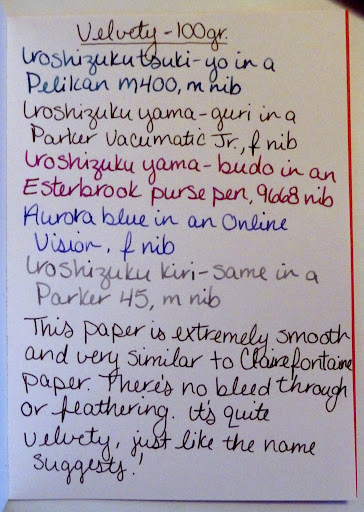 Velvety - 100gr.
Iroshizuku tsuki-yo in a
Pelikan M400, m nib
Iroshizuku yama-guri in a
Parker Vacumatic Jr., f nib
Iroshizuku yama-budo in an
Esterbrook purse pen, 9668 nib
Aurora blue in an Online
Vision, f nib
Iroshizuku kiri-same in a
Parker 45, m nib
This paper is extremely smooth
and very similar to Clairefontaine
paper. There's no bleed through
or feathering. It's quite
velvety, just like the name
suggests!